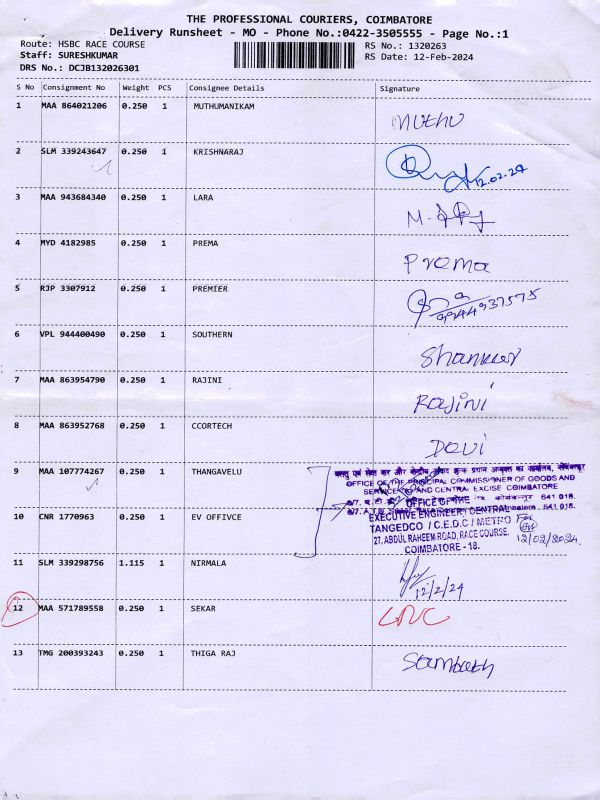 THE PROFESSIONAL COURIERS, COIMBATORE
Delivery Runsheet - MO - Phone No.:0422-3505555 - Page No.:1
Route: HSBC RACE COURSE RS No.: 1320263
Staff: SURESHKUMAR RS Date: 12-Feb-2024
DRS No.: DCJB132026301
S No Consignment No Weight PCS Consignee Details Signature
1 MAA 864021206 0.250 1 MUTHUMANIKAM Muthu
2 SLM 339243647 0.250 1 KRISHNARAJ 12.02.24
3 MAA 943684340 0.250 1 LARA
4 MYD 4182985 0.250 1 PREMA Prema
5 RJP 3307912 0.250 1 PREMIER 9944937575
6 VPL 944400490 0.250 1 SOUTHERN Shankar
7 MAA 863954790 0.250 1 RAJINI Rajini
8 MAA 863952768 0.250 1 CCORTECH Devi
9 MAA 107774267 0.250 1 THANGAVELU
OFFICE OF THE PRINCIPAL COMMISSIONER OF GOODS AND
SERVICE TAX AND CENTRAL EXCISE COIMBATORE
641 018.
10 CNR 1770963 0.250 1 EV OFFIVCE
OFFICE OF THE
EXECUTIVE ENGINEER/ CENTRAL
TANGEDCO / C.E.D.C / METRO For
27, ABDUL RAHEEM ROAD, RACE COURSE. 12/02/2024.
COIMBATORE - 18.
11 SLM 339298756 1.115 1 NIRMALA 12/2/24
12 MAA 571789558 0.250 1 SEKAR
13 TMG 200393243 0.250 1 THIGA RAJ Sambath